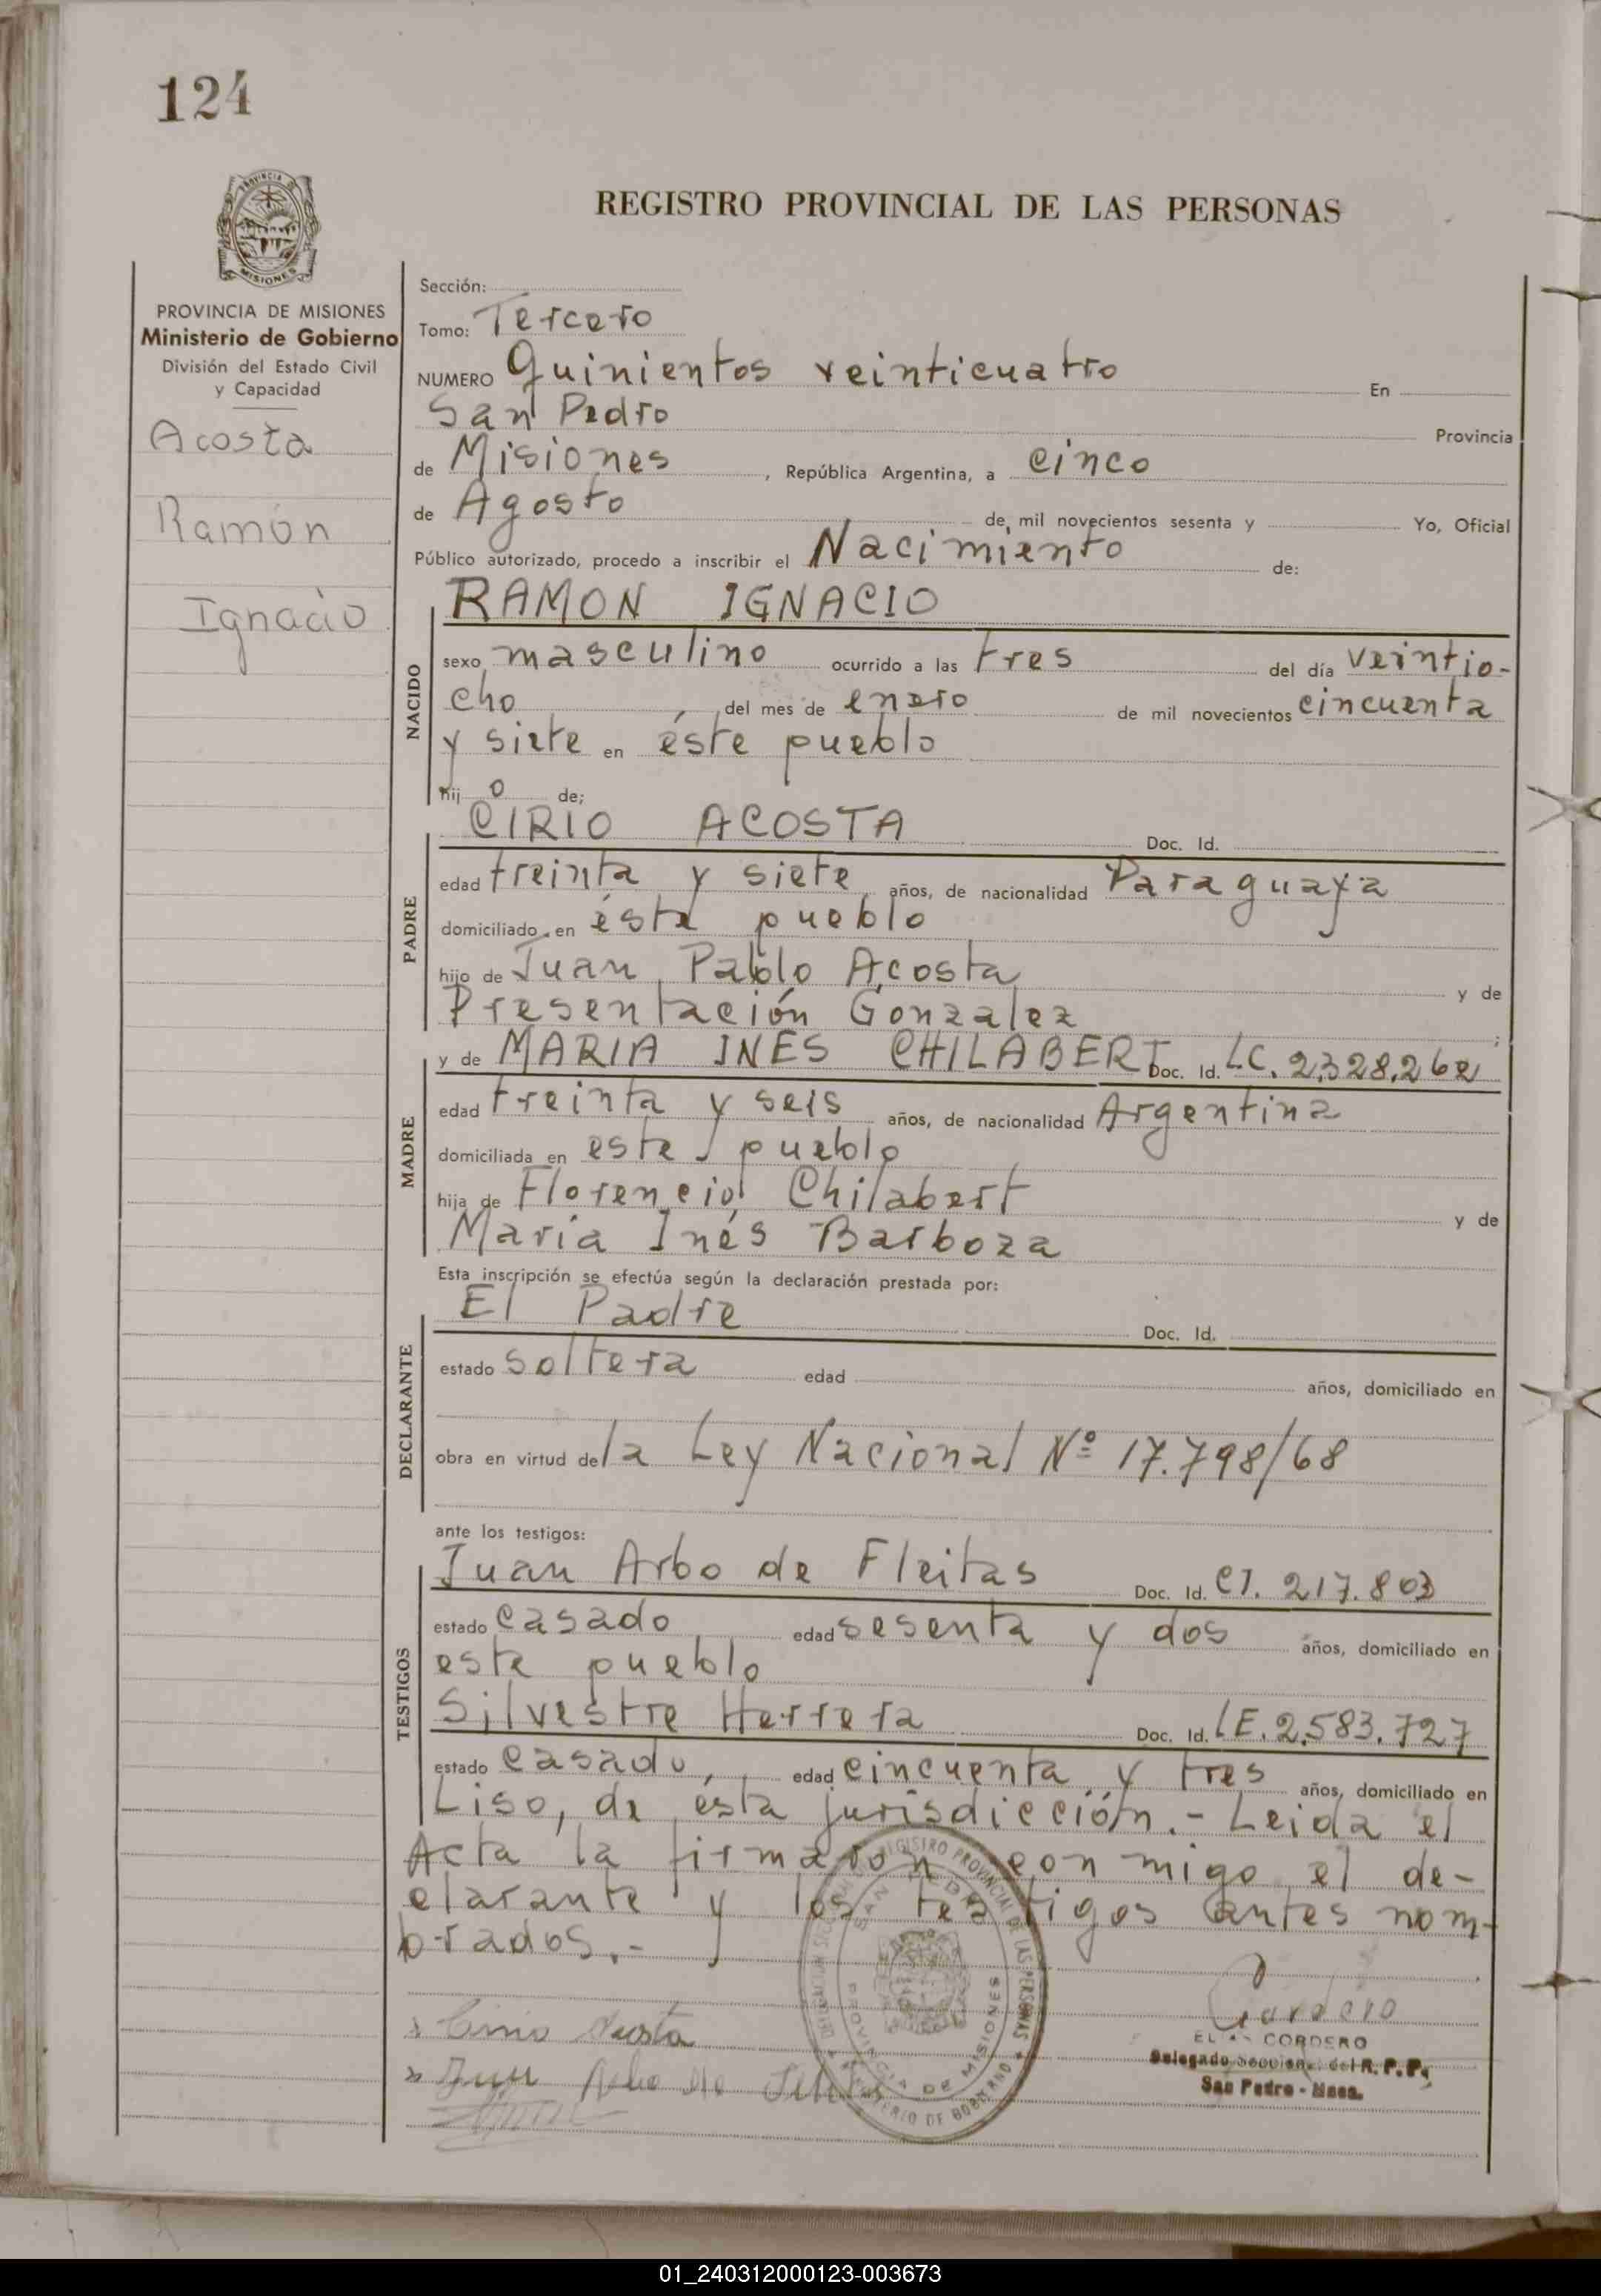 124
PROVINCIA DE MISIONES
REGISTRO PROVINCIAL DE LAS PERSONAS
PROVINCIA DE MISIONES
Ministerio de Gobierno
División del Estado Civil
y Capacidad
Acosta
Ramón
Ignacio
Sección:
Tomo: Tercero
NUMERO Quinientos veinticuatro En
San Pedro Provincia
de Misiones, República Argentina, a cinco
de Agosto de mil novecientos sesenta y Yo, Oficial
Público autorizado, procedo a inscribir el Nacimiento de:
NACIDO
RAMON IGNACIO
sexo masculino ocurrido a las tres del día veintio-
cho del mes de enero de mil novecientos cincuenta
y siete en éste pueblo
hij o de;
PADRE
CIRIO ACOSTA Doc. Id.
edad treinta y siete años, de nacionalidad Paraguaya
domiciliado en éste pueblo
hijo de Juan Pablo Acosta y de
Presentación Gonzalez ;
MADRE
y de MARIA INES CHILABERT Doc. Id. LC. 2.328.262
edad treinta y seis años, de nacionalidad Argentina
domiciliada en este pueblo
hija de Florencio Chilabert y de
María Inés Barboza
Esta inscripción se efectúa según la declaración prestada por:
DECLARANTE
El Padre Doc. Id.
estado soltera edad años, domiciliado en
obra en virtud de la Ley Nacional Nº 17.798/68
ante los testigos:
TESTIGOS
Juan Arbo de Fleitas Doc. Id. CI. 217.803
estado casado edad sesenta y dos años, domiciliado en
este pueblo
Silvestre Herrera Doc. Id. LE. 2.583.727
estado casado, edad cincuenta y tres años, domiciliado en
Liso, de ésta jurisdicción.- Leida el
Acta la firmaron conmigo el de-
clarante y los testigos antes nom-
brados.-
REGISTRO PROVINCIAL DE LAS PERSONAS
SAN PEDRO
PROVINCIA DE MISIONES
MINISTERIO DE GOBIERNO
Cirio Acosta
Juan Arbo de
Cordero
CORDERO
Delegado Seccional del R. P. P.
San Pedro - Mnes.
01_240312000123-003673